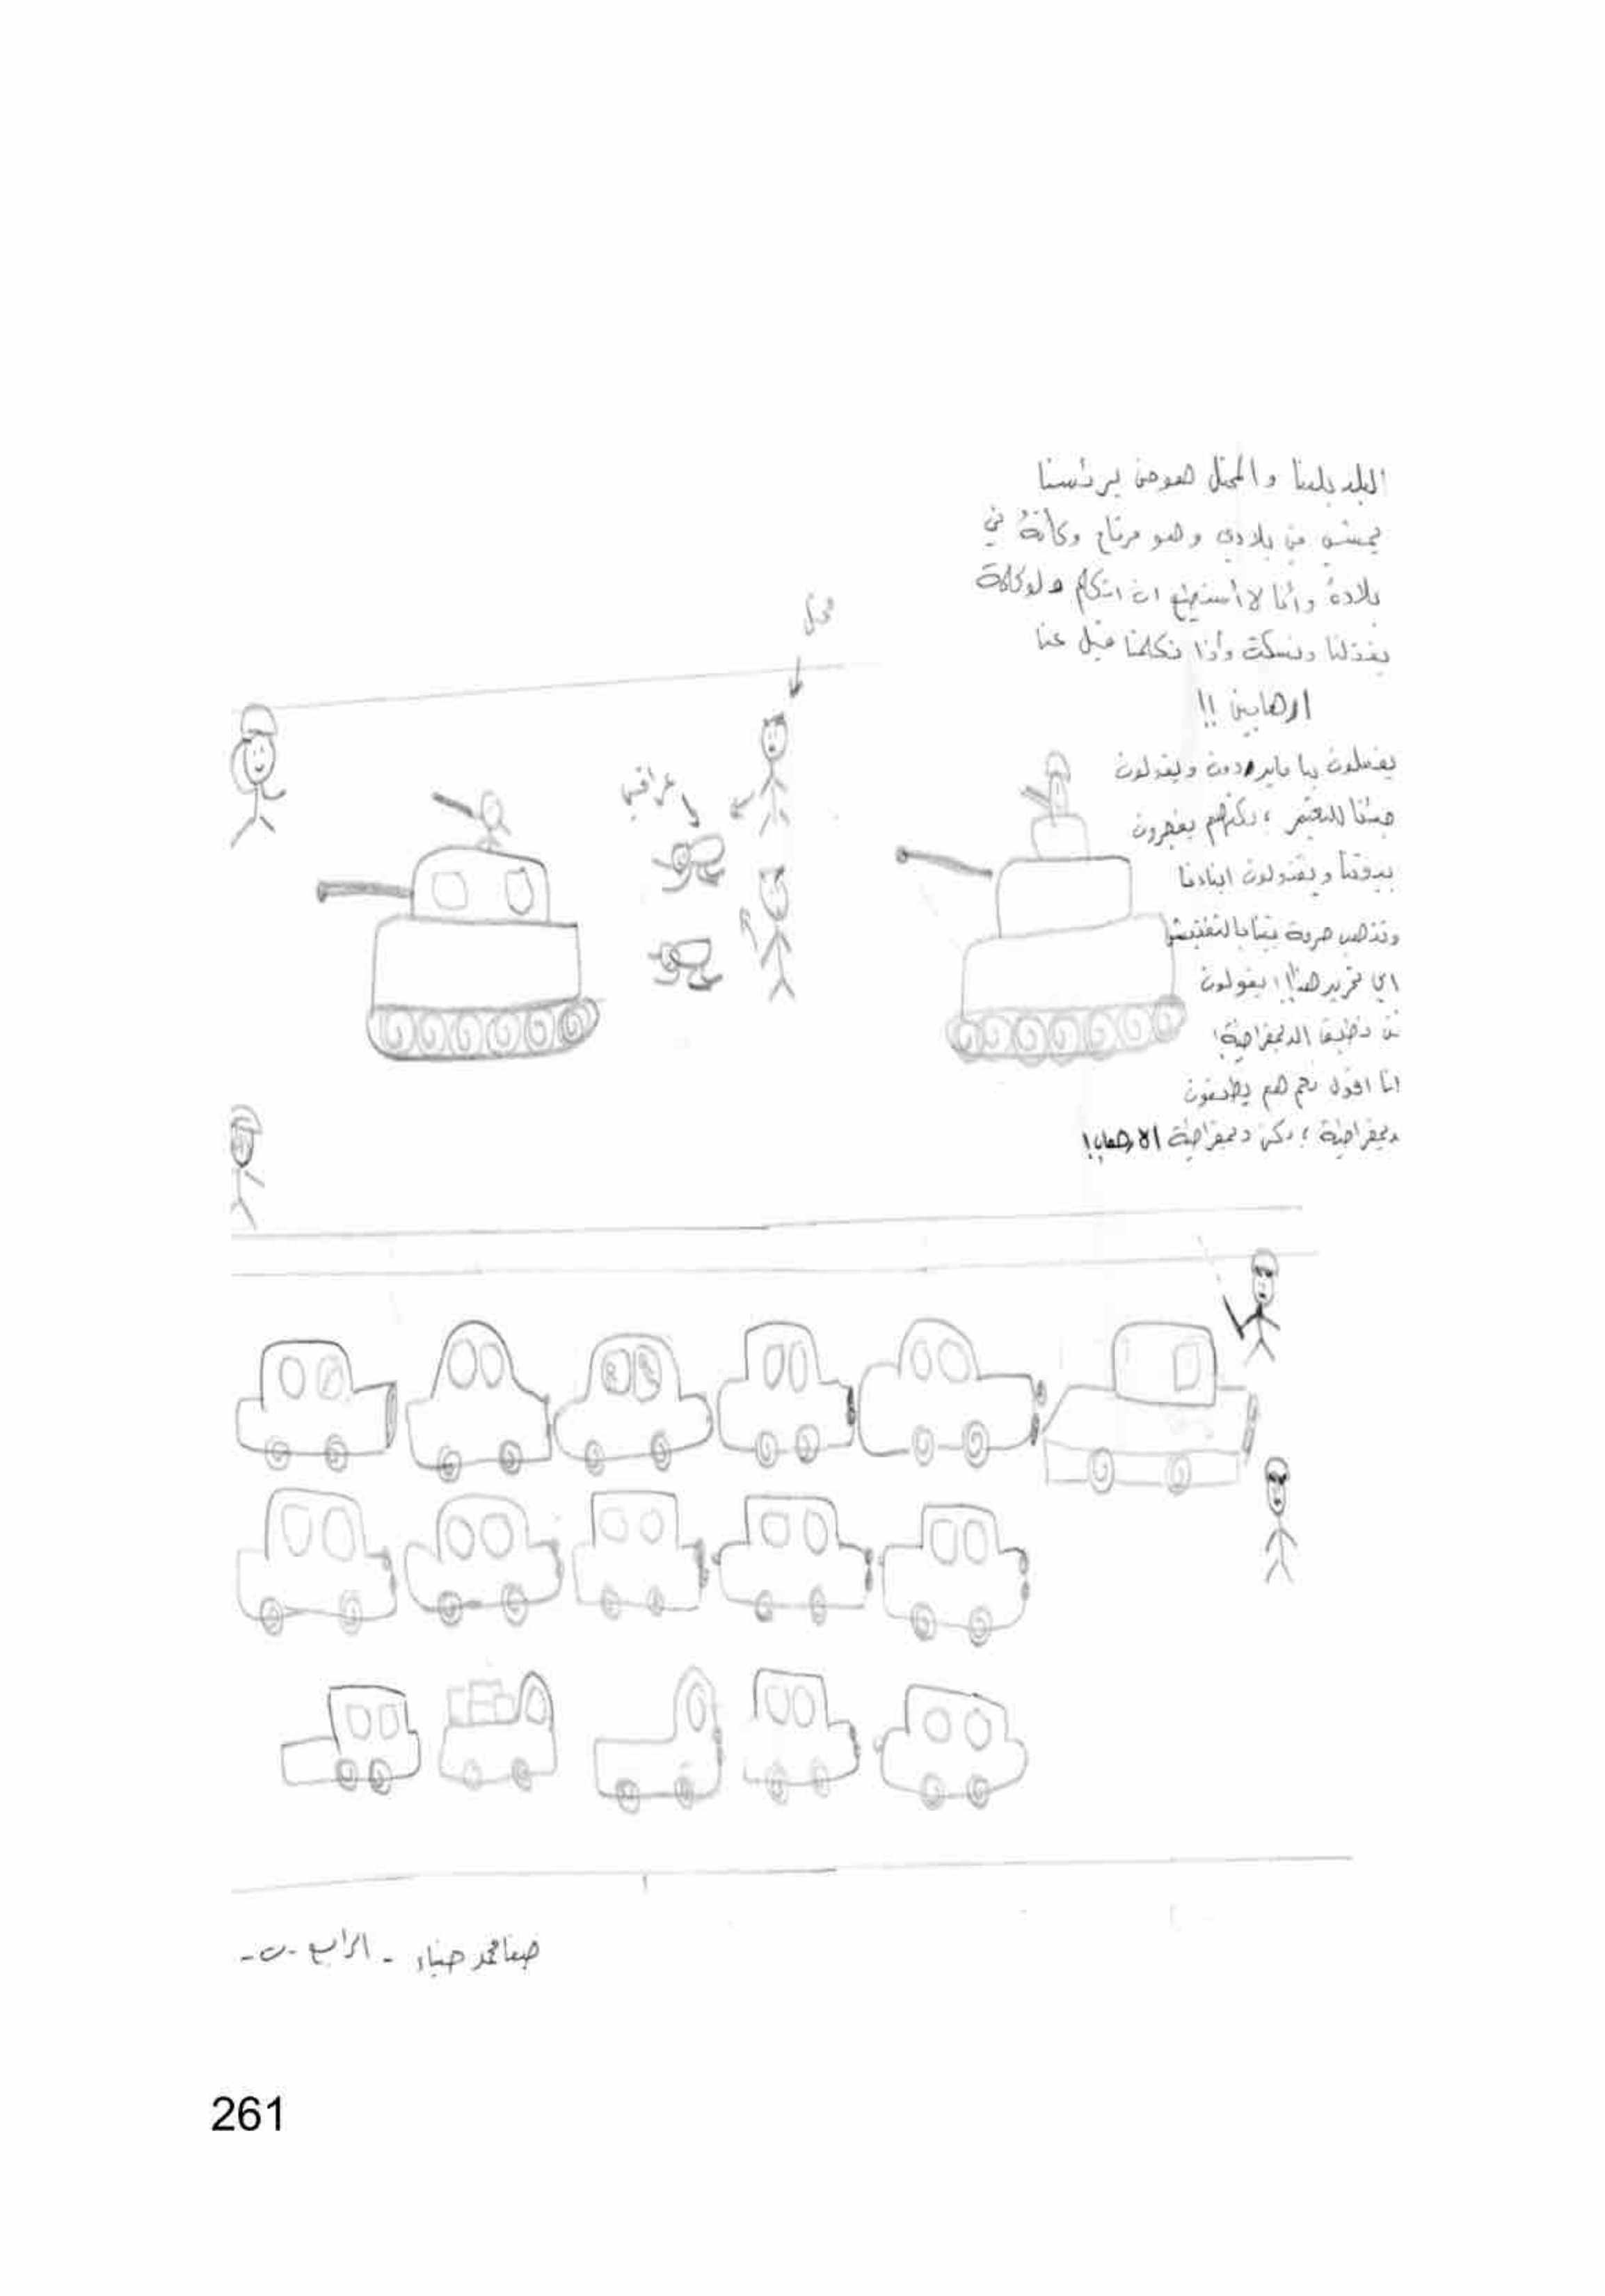 البلد بلدنا والمحتل هو من يرئسنا
يمشي في بلادي وهو مرتاح وكأنهُ في
بلادهُ وأنا لا أستطيع ان اتكلم ولو كلمة
يقتلنا ونسكت وأذا تكلمنا قيل عنا
ارهابين !!
يفعلون بنا مايريدون ويقولون
جئنا للتعمير ، لكنهم يفجرون
بيوتنا و يقتلون ابنادنا
وتذهب حرمة بيتنا بالتفتيش
اي تحرير هذا! يقولون
نحن نطبق الديمقراطية!
انا اقول نعم هم يطبقون
ديمقراطية ، لكن ديمقراطية الارهاب!
محتل
عراقي
صفا محمد ضياء - الرابع -ب-
261